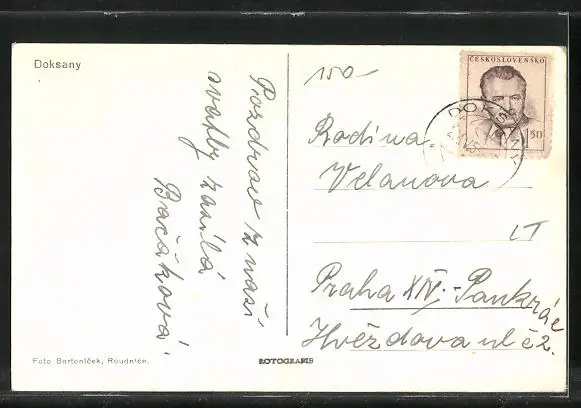 Doksany
Pozdrav z naší
svatby zasílá
Bačáková.
150
ČESKOSLOVENSKO
1.50
DOKSANY
Rodina
Velanova
LT
Praha XIV.-Pankrác
Hvězdova ul č 2.
Foto Bartoníček, Roudnice.
ROTOGRAFIE